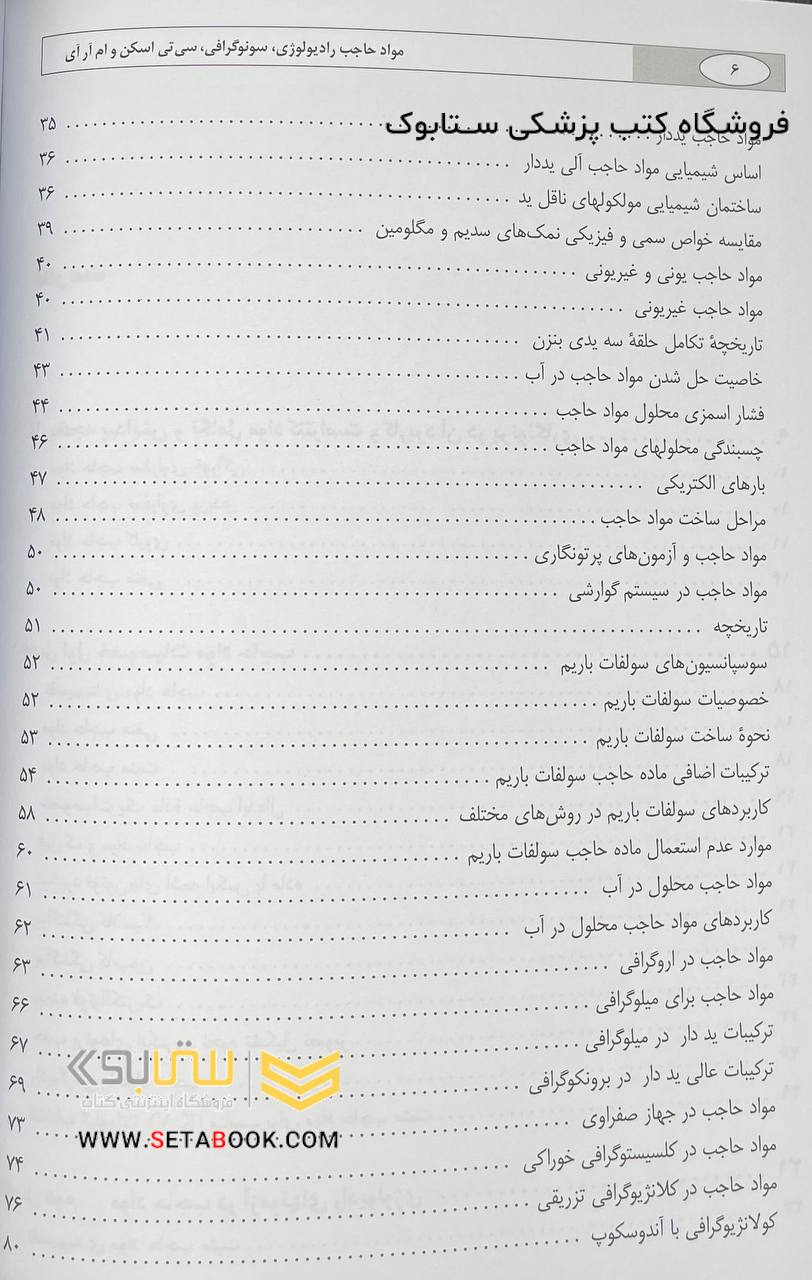 ۶
مواد حاجب رادیولوژی، سونوگرافی، سی‌تی اسکن و ام آر آی
فروشگاه کتب پزشکی ستابوک
مواد حاجب یددار ۳۵
اساس شیمیایی مواد حاجب آلی یددار ۳۶
ساختمان شیمیایی مولکولهای ناقل ید ۳۶
مقایسه خواص سمی و فیزیکی نمک‌های سدیم و مگلومین ۳۹
مواد حاجب یونی و غیریونی ۴۰
مواد حاجب غیریونی ۴۰
تاریخچهٔ تکامل حلقهٔ سه یدی بنزن ۴۱
خاصیت حل شدن مواد حاجب در آب ۴۳
فشار اسمزی محلول مواد حاجب ۴۴
چسبندگی محلولهای مواد حاجب ۴۶
بارهای الکتریکی ۴۷
مراحل ساخت مواد حاجب ۴۸
مواد حاجب و آزمون‌های پرتونگاری ۵۰
مواد حاجب در سیستم گوارشی ۵۰
تاریخچه ۵۱
سوسپانسیون‌های سولفات باریم ۵۲
خصوصیات سولفات باریم ۵۲
نحوهٔ ساخت سولفات باریم ۵۳
ترکیبات اضافی ماده حاجب سولفات باریم ۵۴
کاربردهای سولفات باریم در روش‌های مختلف ۵۸
موارد عدم استعمال ماده حاجب سولفات باریم ۶۰
مواد حاجب محلول در آب ۶۱
کاربردهای مواد حاجب محلول در آب ۶۲
مواد حاجب در اروگرافی ۶۳
مواد حاجب برای میلوگرافی ۶۶
ترکیبات ید دار در میلوگرافی ۶۷
ترکیبات عالی ید دار در برونکوگرافی ۶۹
مواد حاجب در جهاز صفراوی ۷۳
مواد حاجب در کلسیستوگرافی خوراکی ۷۴
مواد حاجب در کلانژیوگرافی تزریقی ۷۶
کولانژیوگرافی با آندوسکوپ ۸۰
ستابوک
فروشگاه اینترنتی کتاب
WWW.SETABOOK.COM